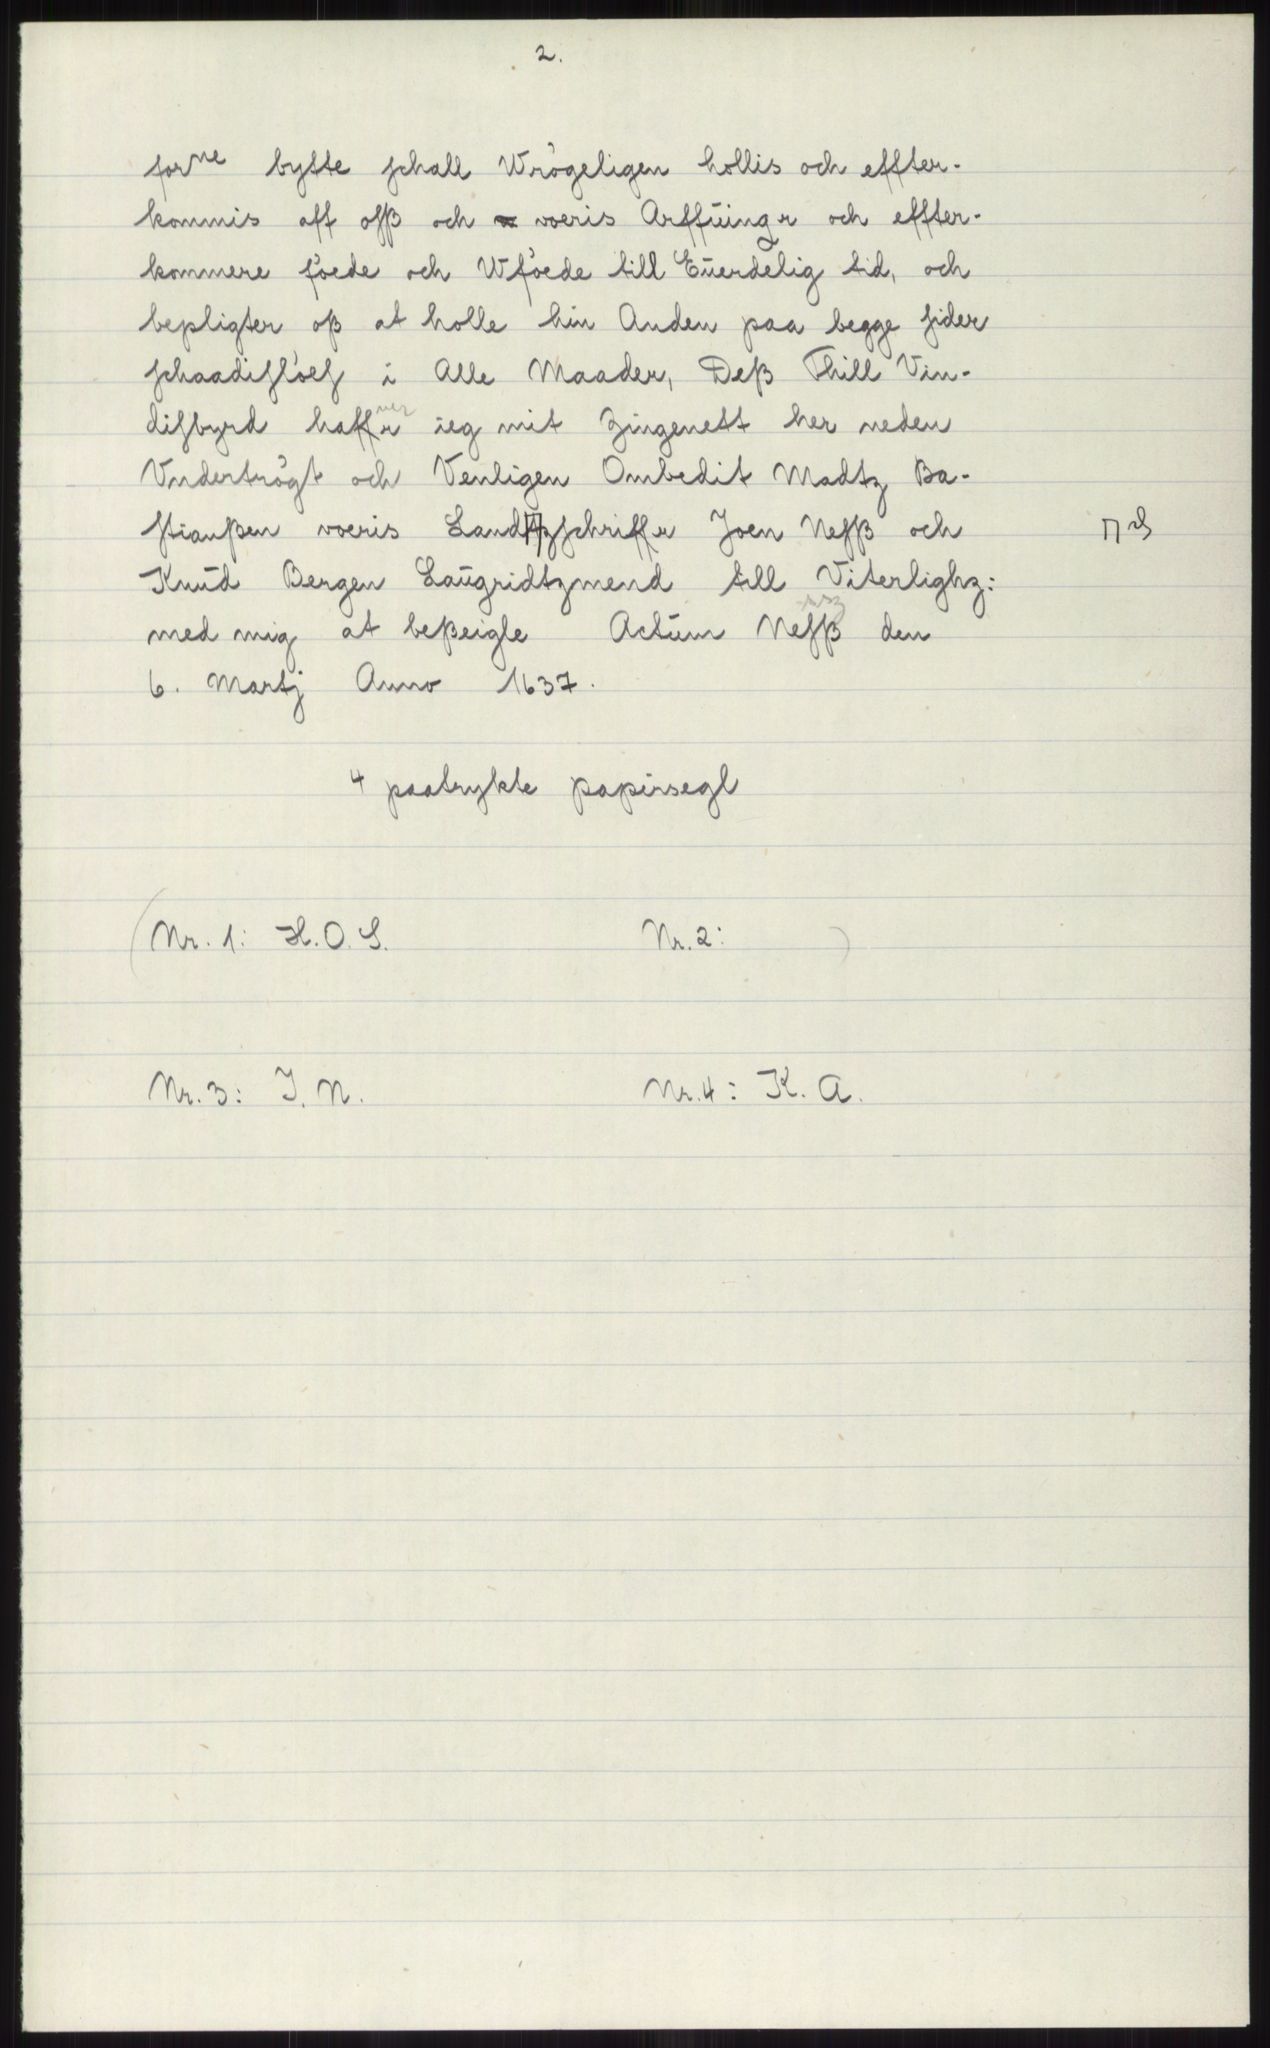 2.
forne bytte schall Wrögeligen hollis och effter-
kommis aff osß och voeris Arffūingr och effter-
kommere föede och Wföede till Eūerdelig tid, och
bepligter oß at holle hin Anden paa begge sider
schaadislöes i Alle Maader, Deß Thill Vin-
disbyrd haffr ieg mit Zingenett her neden
Vndertrögt och Venligen Ombedit Madtz Ba-
stianßen voeris Landtzschriffr Joen Nesß och
Knūd Bergen Laūgridtzmend till Viterlighz:
med mig at beßeigle Actūm Nesß den
6. Martj Anno 1637.
4 paatrykte papirsegl
(Nr. 1: H. O. S. Nr. 2: )
Nr. 3: J. N. Nr. 4: K. A.